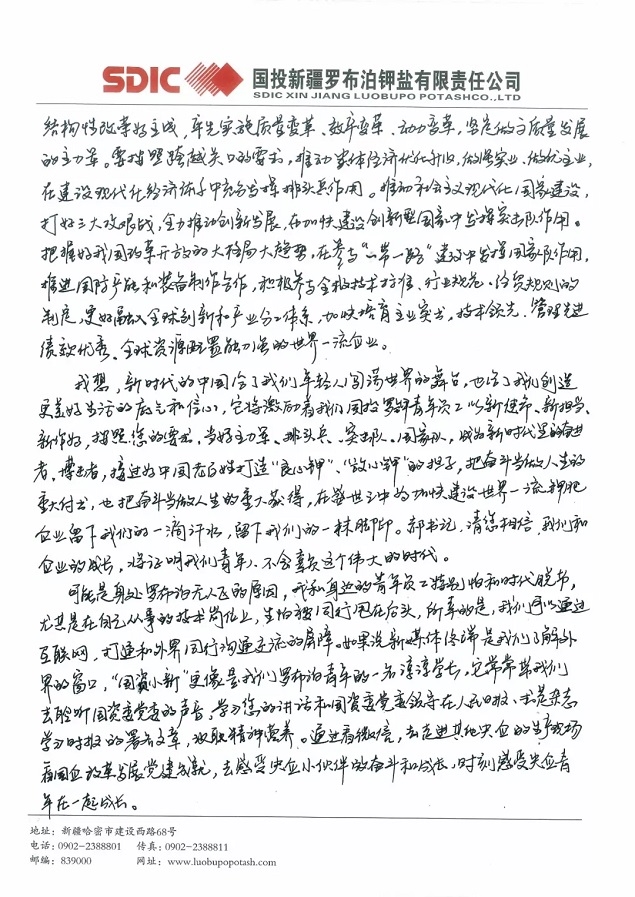 SDIC 国投新疆罗布泊钾盐有限责任公司
SDIC XIN JIANG LUOBUPO POTASHCO.,LTD
结构性改革好主战，率先实施质量变革、效率变革、动力变革，坚定做高质量发展
的主力军。要按照跨越关口的要求，推动集体经济优化升级，做强实业、做优主业，
在建设现代化经济体系中充分发挥排头兵作用。推动社会主义现代化国家建设，
打好三大攻坚战，全力推动创新发展，在加快建设创新型国家中发挥突击队作用。
把握好我国改革开放的大格局大趋势，在参与“一带一路”建设中发挥国家队作用，
推进国际产能和装备制作合作，积极参与全球技术标准、行业规范、经贸规则的
制定，更好融入全球创新和产业分工体系，加快培育主业突出、技术领先、管理先进
绩效优秀、全球资源配置能力强的世界一流企业。
我想，新时代的中国给了我们年轻人闯荡世界的舞台，也给了我们创造
更美好生活的底气和信心，它将激励着我们国投罗钾青年员工以新使命、新担当、
新作为，按照您的要求，当好主力军、排头兵、突击队、国家队，成为新时代里的奋进
者、搏击者，接过好中国老百姓打造“良心钾”、“放心钾”的担子，把奋斗当做人生的
重大付出，也把奋斗当做人生的重大获得，在盛世之中为加快建设世界一流钾肥
企业留下我们的一滴汗水，留下我们的一抹脚印。郝书记，请您相信，我们和
企业的成长，将证明我们青年人不会辜负这个伟大的时代。
可能是身处罗布泊无人区的原因，我和身边的青年员工特别怕和时代脱节，
尤其是在自己从事的技术岗位上，生怕被同行甩在后头，所幸的是，我们可以通过
互联网，打通和外界同行沟通交流的屏障。如果说新媒体终端是我们了解外
界的窗口，“国资小新”更像是我们罗布泊青年的一名谆谆学长，它常常带我们
去聆听国资委党委的声音，学习您的讲话和国资委党委领导在人民日报、求是杂志
学习时报的署名文章，汲取精神营养。通过看微信，去走进其他央企的生产现场
看国企改革发展党建成就，去感受央企小伙伴的奋斗和成长，时刻感受央企青
年在一起成长。
地址：新疆哈密市建设西路68号
电话：0902-2388801 传真：0902-2388811
邮编：839000 网址：www.luobupopotash.com